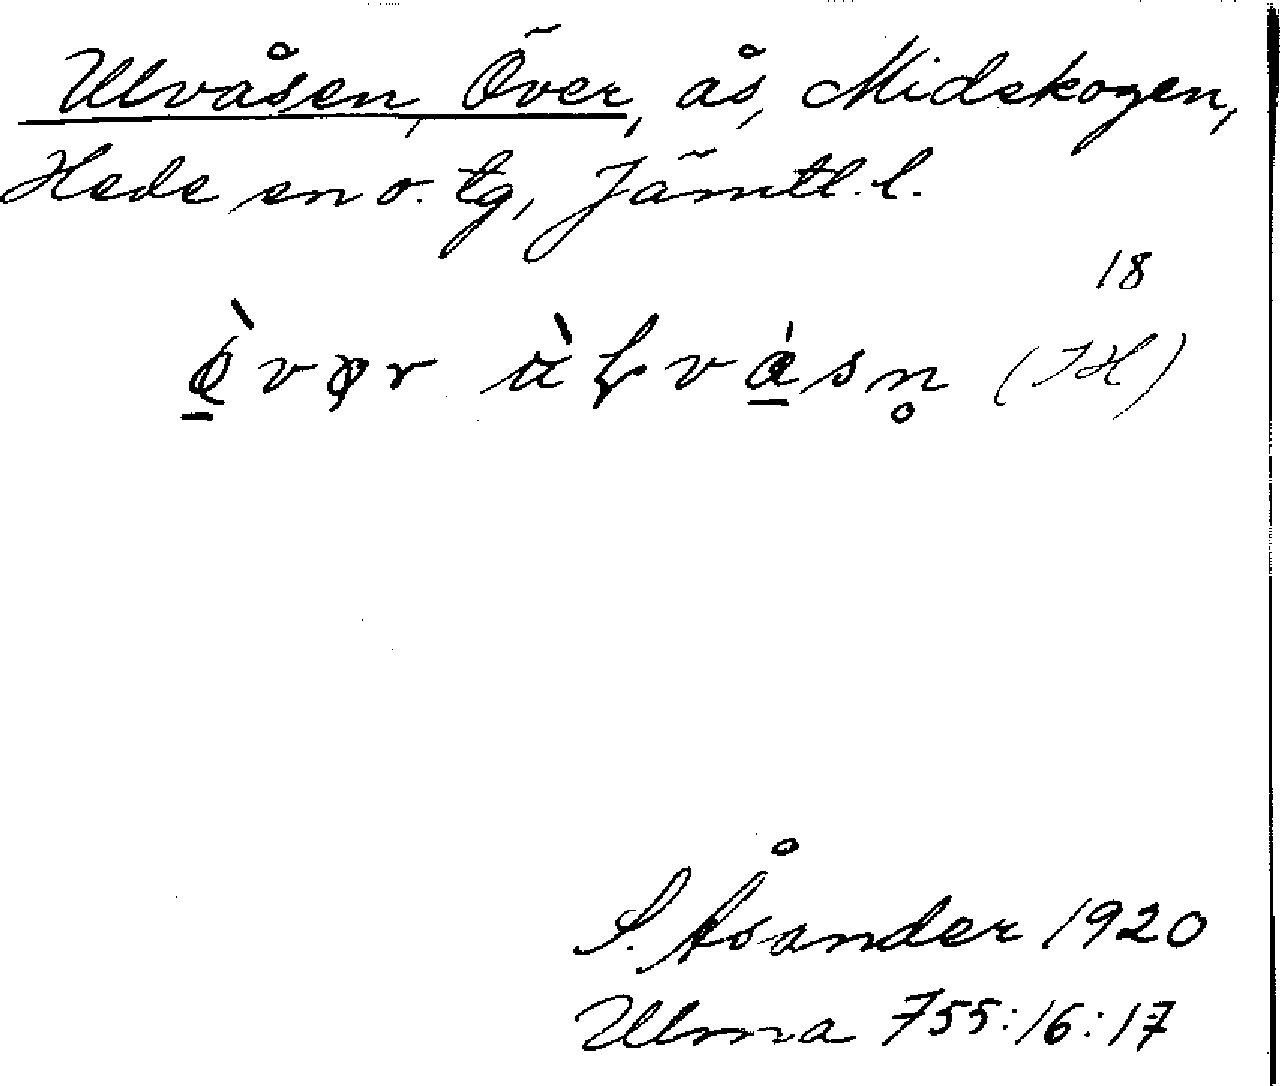 Ulvåsen, Över, ås, Midskogen,
Hede sn o. tg, Jämtl. l.
18
(JH)
S. Åsander 1920
Ulma 755:16:17